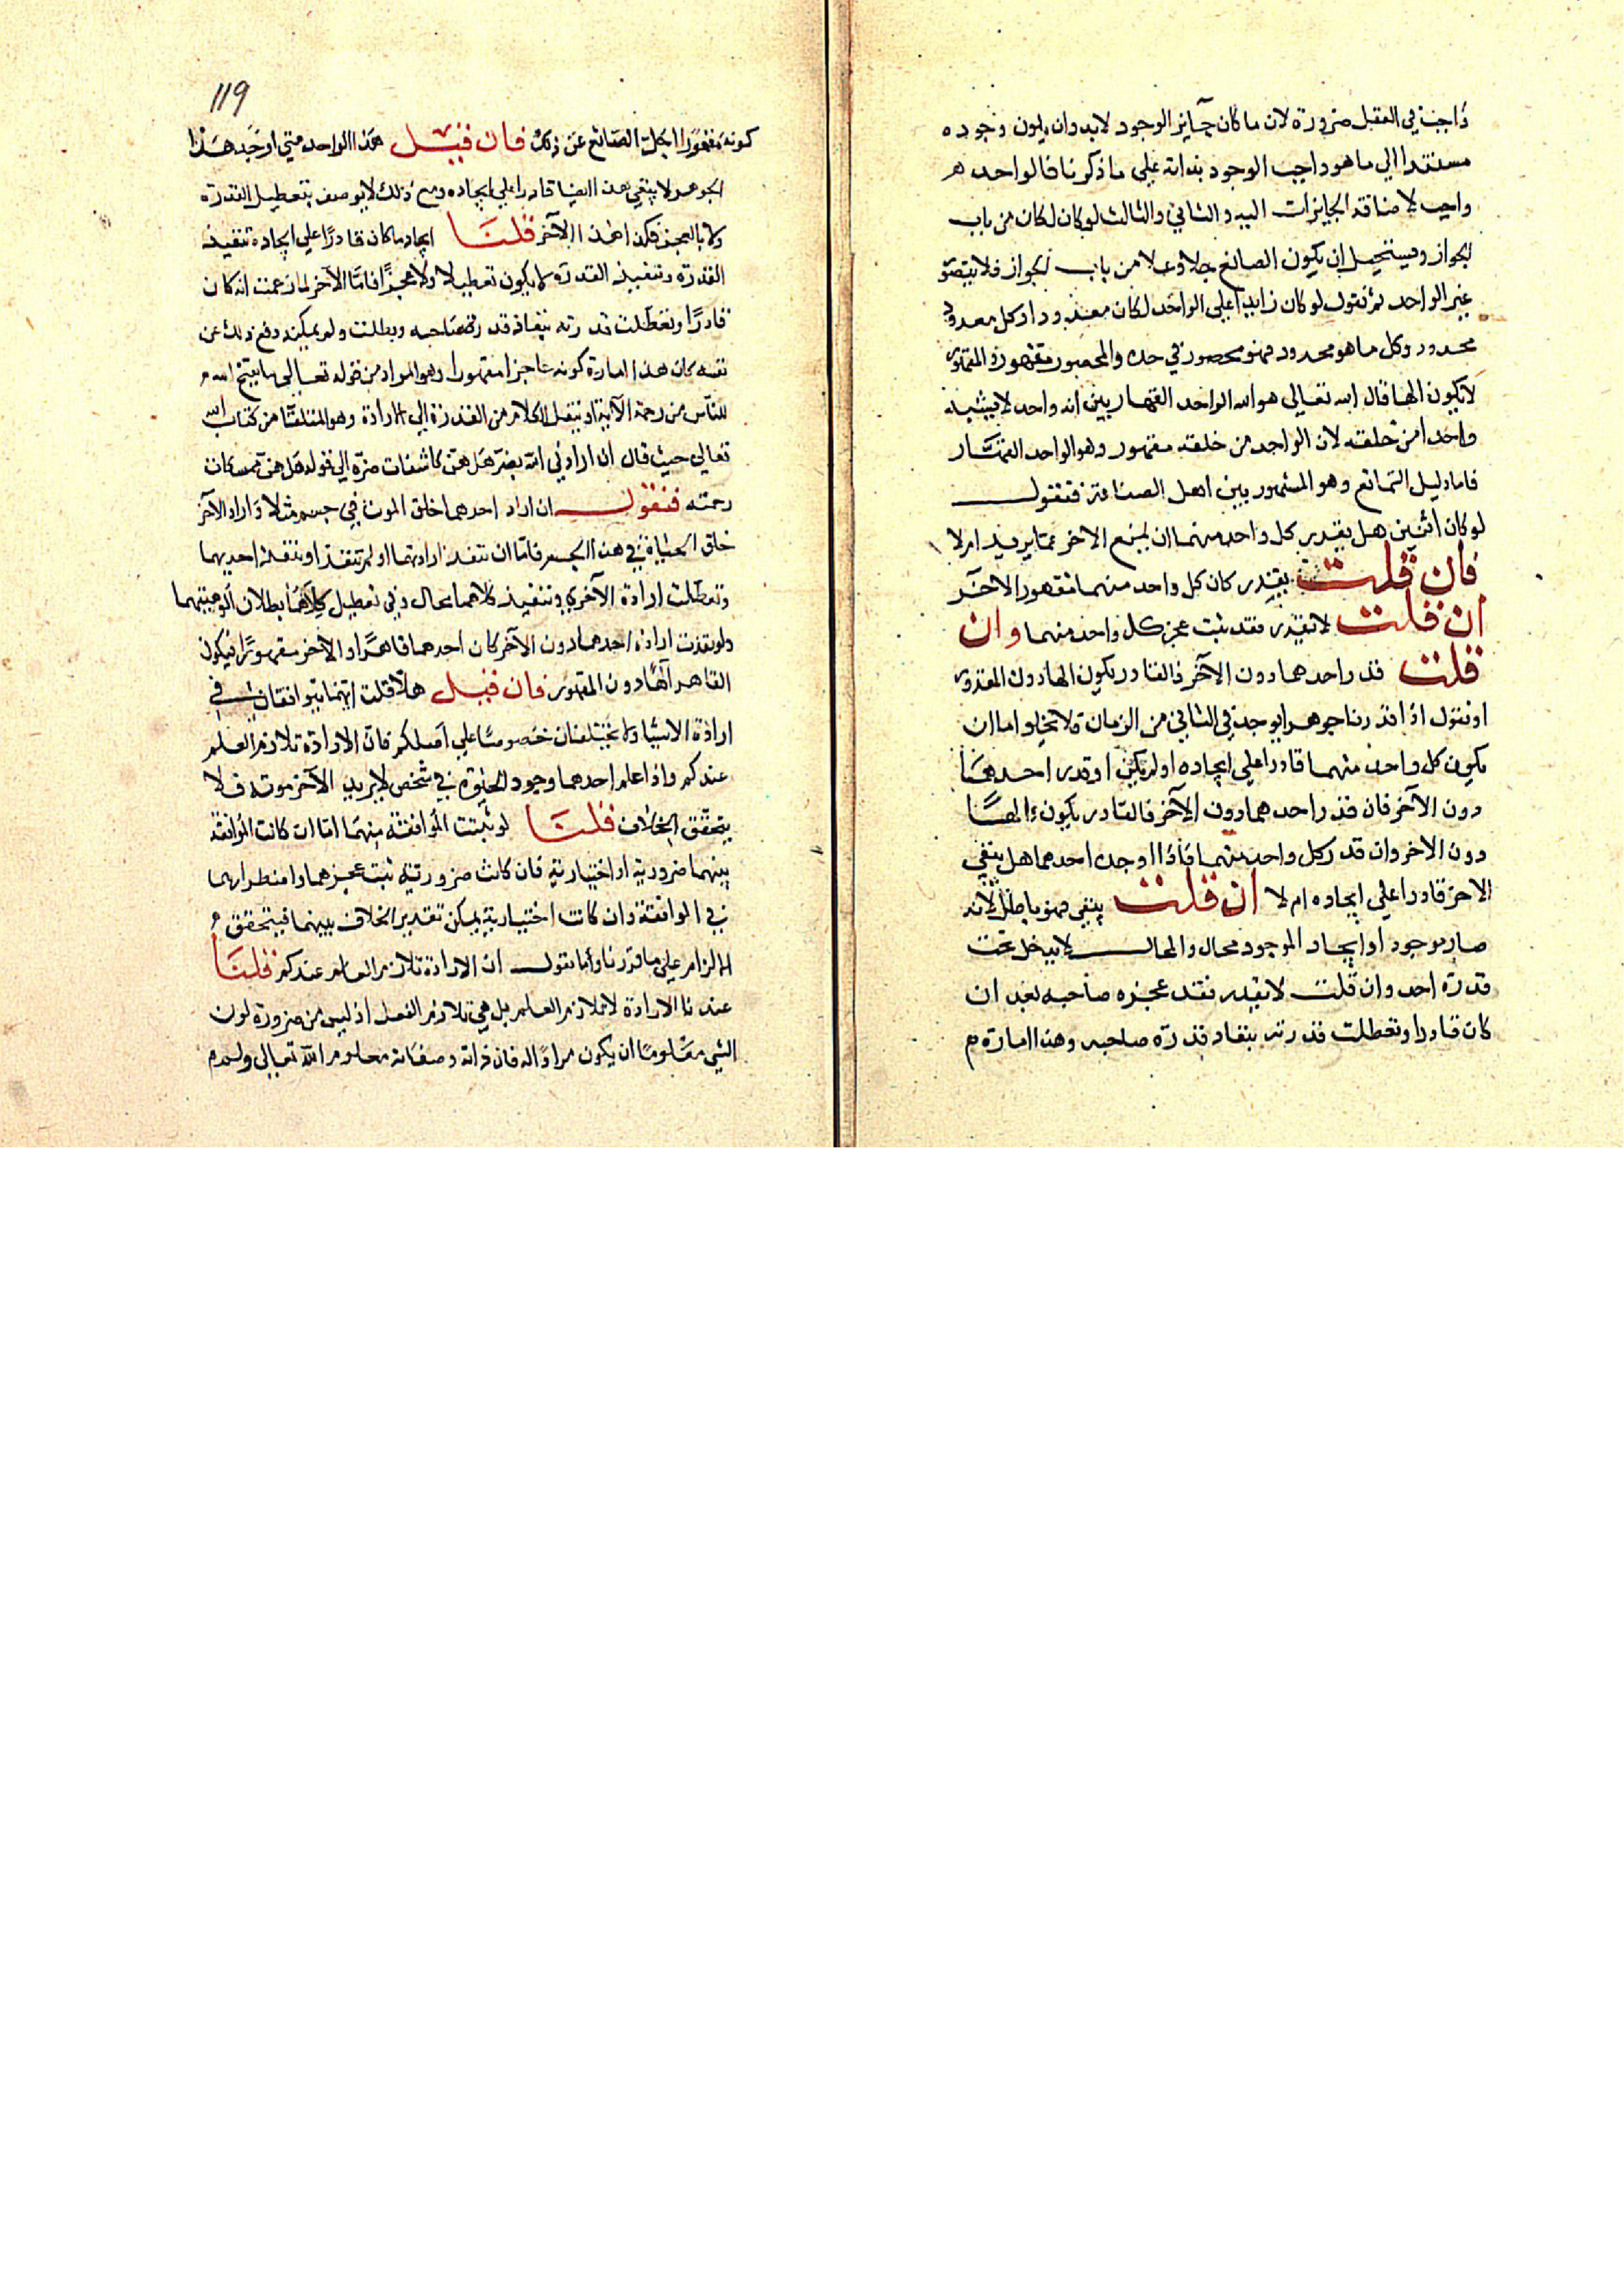 واجب في العقل ضرورة لان ما كان جايز الوجود لابد وان يكون وجوده
مستندا الي ما هو واجب الوجود بذاته علي ما ذكرنا فالواحد
واجب لاضافة الجايزات اليه والثاني والثالث لو كان لكان من باب
الجواز ويستحيل ان يكون الصانع جلا وعلا من باب الجواز فلا يتصور
غير الواحد ثم نقول لو كان زايدا علي الواحد لكان معدودا وكل معدود
محدود وكل ما هو محدود فهو محصور في حده والمحصور مقهور والمقهور
لا يكون الها قال الله تعالي هو الله الواحد القهار يبين انه واحد لا يشبه
واحدا من خلقه لان الواحد من خلقه مقهور وهو الواحد القهار
فاما دليل التمانع وهو المشهور بين اهل الصناعة فنقول
لو كان اثنين هل يقدر كل واحد منهما ان يمنع الاخر عما يريد ام لا
فان قلت يقدر كان كل واحد منهما مقهور الاخر
ان قلت لا يقدر فقد ثبت عجز كل واحد منهما وان
قلت قدر احدهما دون الآخر فالقادر يكون الها دون المقدور
او نقول اذا قدرنا جوهرا يوجد في الثاني من الزمان فلا يخلوا اما ان
يكون كل واحد منهما قادرا علي ايجاده او لم يكن او قدر احدهما
دون الآخر فان قدر احدهما دون الآخر فالقادر يكون الها
دون الاخر وان قدر كل واحد منهما فاذا اوجده احدهما هل يبقي
الاخر قادرا علي ايجاده ام لا ان قلت يبقي فهو باطل لانه
صار موجودا وايجاد الموجود محال والمحال لا يدخل تحت
قدرة احد وان قلت لا يقدر فقد عجزه صاحبه بعد ان
كان قادرا وتعطلت قدرته بنفاد قدرة صاحبه وهذا امارة
119
كونه مقهورا جل الصانع عن ذلك فان قيل هذا الواحد متي اوجد هذا
الجوهر لا يبقي هذا ايضا قادرا علي ايجاده ومع ذلك لا يوصف بتعطيل القدرة
ولا بالعجز فكذا هذا الآخر قلنا ايجاد ما كان قادرا علي ايجاده تنفيذ
القدرة وتنفيذ القدرة لا يكون تعطيلا ولا عجزا فاما الآخر لما زعمت انه كان
قادرا وتعطلت قدرته بنفاذ قدرة صاحبه وبطلت ولم يمكنه دفع ذلك عن
نفسه كان هذا امارة كونه عاجزا مقهورا وهو المراد من قوله تعالي ما يفتح الله
للناس من رحمة الآية او ننقل الكلام من القدرة الي الارادة وهو المتلقا من كتاب الله
تعالي حيث قال ان ارادني الله بضر هل هن كاشفات ضره الي قوله هل هن ممسكات
رحمته فنقول ان اراد احدهما خلق الموت في جسم مثلا واراد الآخر
خلق الحياة في هذا الجسم فاما ان تنفذ ارادتهما او لم تنفذ او تنفذ احديهما
وتعطلت ارادة الآخري وتنفيذ كلاهما محال وفي تعطيل كلاهما بطلان الوهيتهما
ولو نفذت ارادة احدهما دون الآخر كان احدهما قاهرا والاخر مقهورا فيكون
القاهر الها دون المقهور فان قيل هلا قلت انهما يتوافقان في
ارادة الاشيا ولا يختلفان خصوصا علي اصلكم فان الارادة تلازم العلم
عندكم واذا علم احدهما وجود الحيوة في شخص لا يريد الآخر موته فلا
يتحقق الخلاف قلنا لو ثبتت الموافقة بينهما اما ان كانت الموافقة
بينهما ضرورية او اختيارية فان كانت ضرورية ثبت عجزهما واضطرارهما
في الموافقة وان كانت اختيارية يمكن تقدير الخلاف بينهما فيتحقق
الالزام علي ما قررنا واما نقول ان الارادة تلازم العلم عندكم قلنا
عندنا الارادة لا تلازم العلم بل هي تلازم الفعل اذ ليس من ضرورة كون
الشي معلوما ان يكون مرادا له فان ذاته وصفاته معلوم الله تعالي وليس